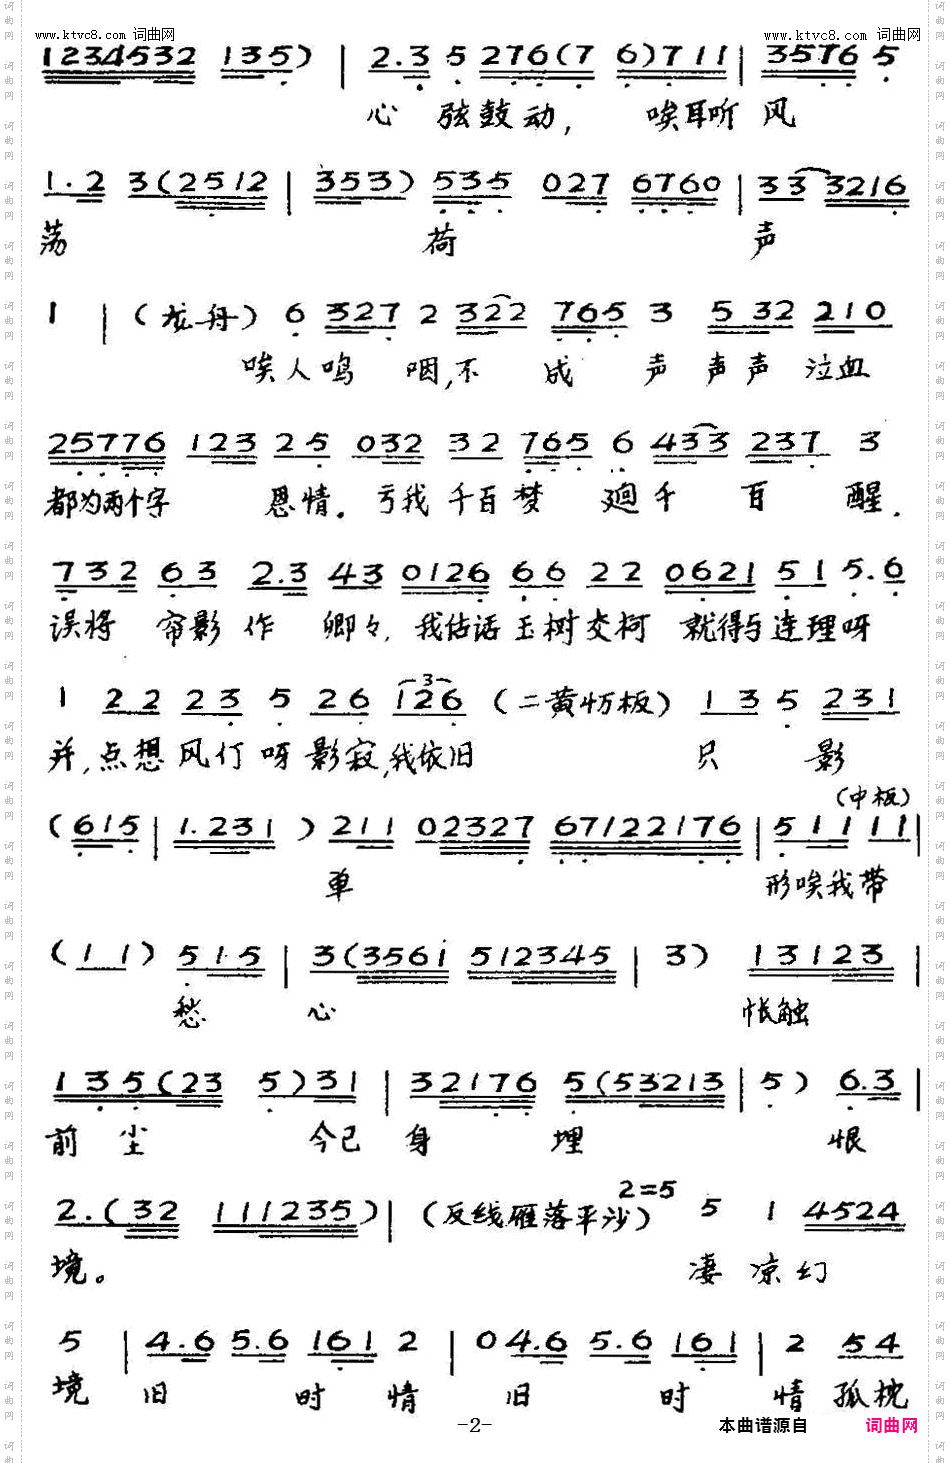 www.ktvc8.com 词曲网 www.ktvc8.com 词曲网
1234532 135) | 2.3 5 276(7 6)711 | 3576 5
心 弦鼓动, 唉耳听风
1.2 3(2512 | 353) 535 027 6760 | 33 3216
荡 荷 声
1 | (龙舟) 6 327 2 322 765 3 5 32 210
唉人鸣 咽,不 成 声 声声 泣血
25776 123 25 032 32 765 6 433 237 3
都为两个字 恩情. 亏我 千百梦 廻千 百 醒.
732 63 2.3 43 0126 66 22 0621 51 5.6
误将 帘影作 卿々, 我估话玉树交柯 就得与连理呀
1 22 23 5 26 126 (二黄板) 135 231
并,点想风仃呀影寂,我依旧 只 影
(中板)
(615 | 1.231 ) 211 02327 67122176 | 51111 |
单 形唉我带
(11) 515 | 3(3561 512345 | 3) 13123 |
愁 心 怅触
135(23 5)31 | 32176 5(53213 | 5) 6.3 |
前尘 今已身 埋 恨
2.(32 111235) | (反线雁落平沙) 2=5 5 1 4524
境。 凄凉幻
5 | 4.6 5.6 161 2 | 04.6 5.6 161 | 2 54
境 旧 时 情 旧 时 情孤枕
-2- 本曲谱源自 词曲网